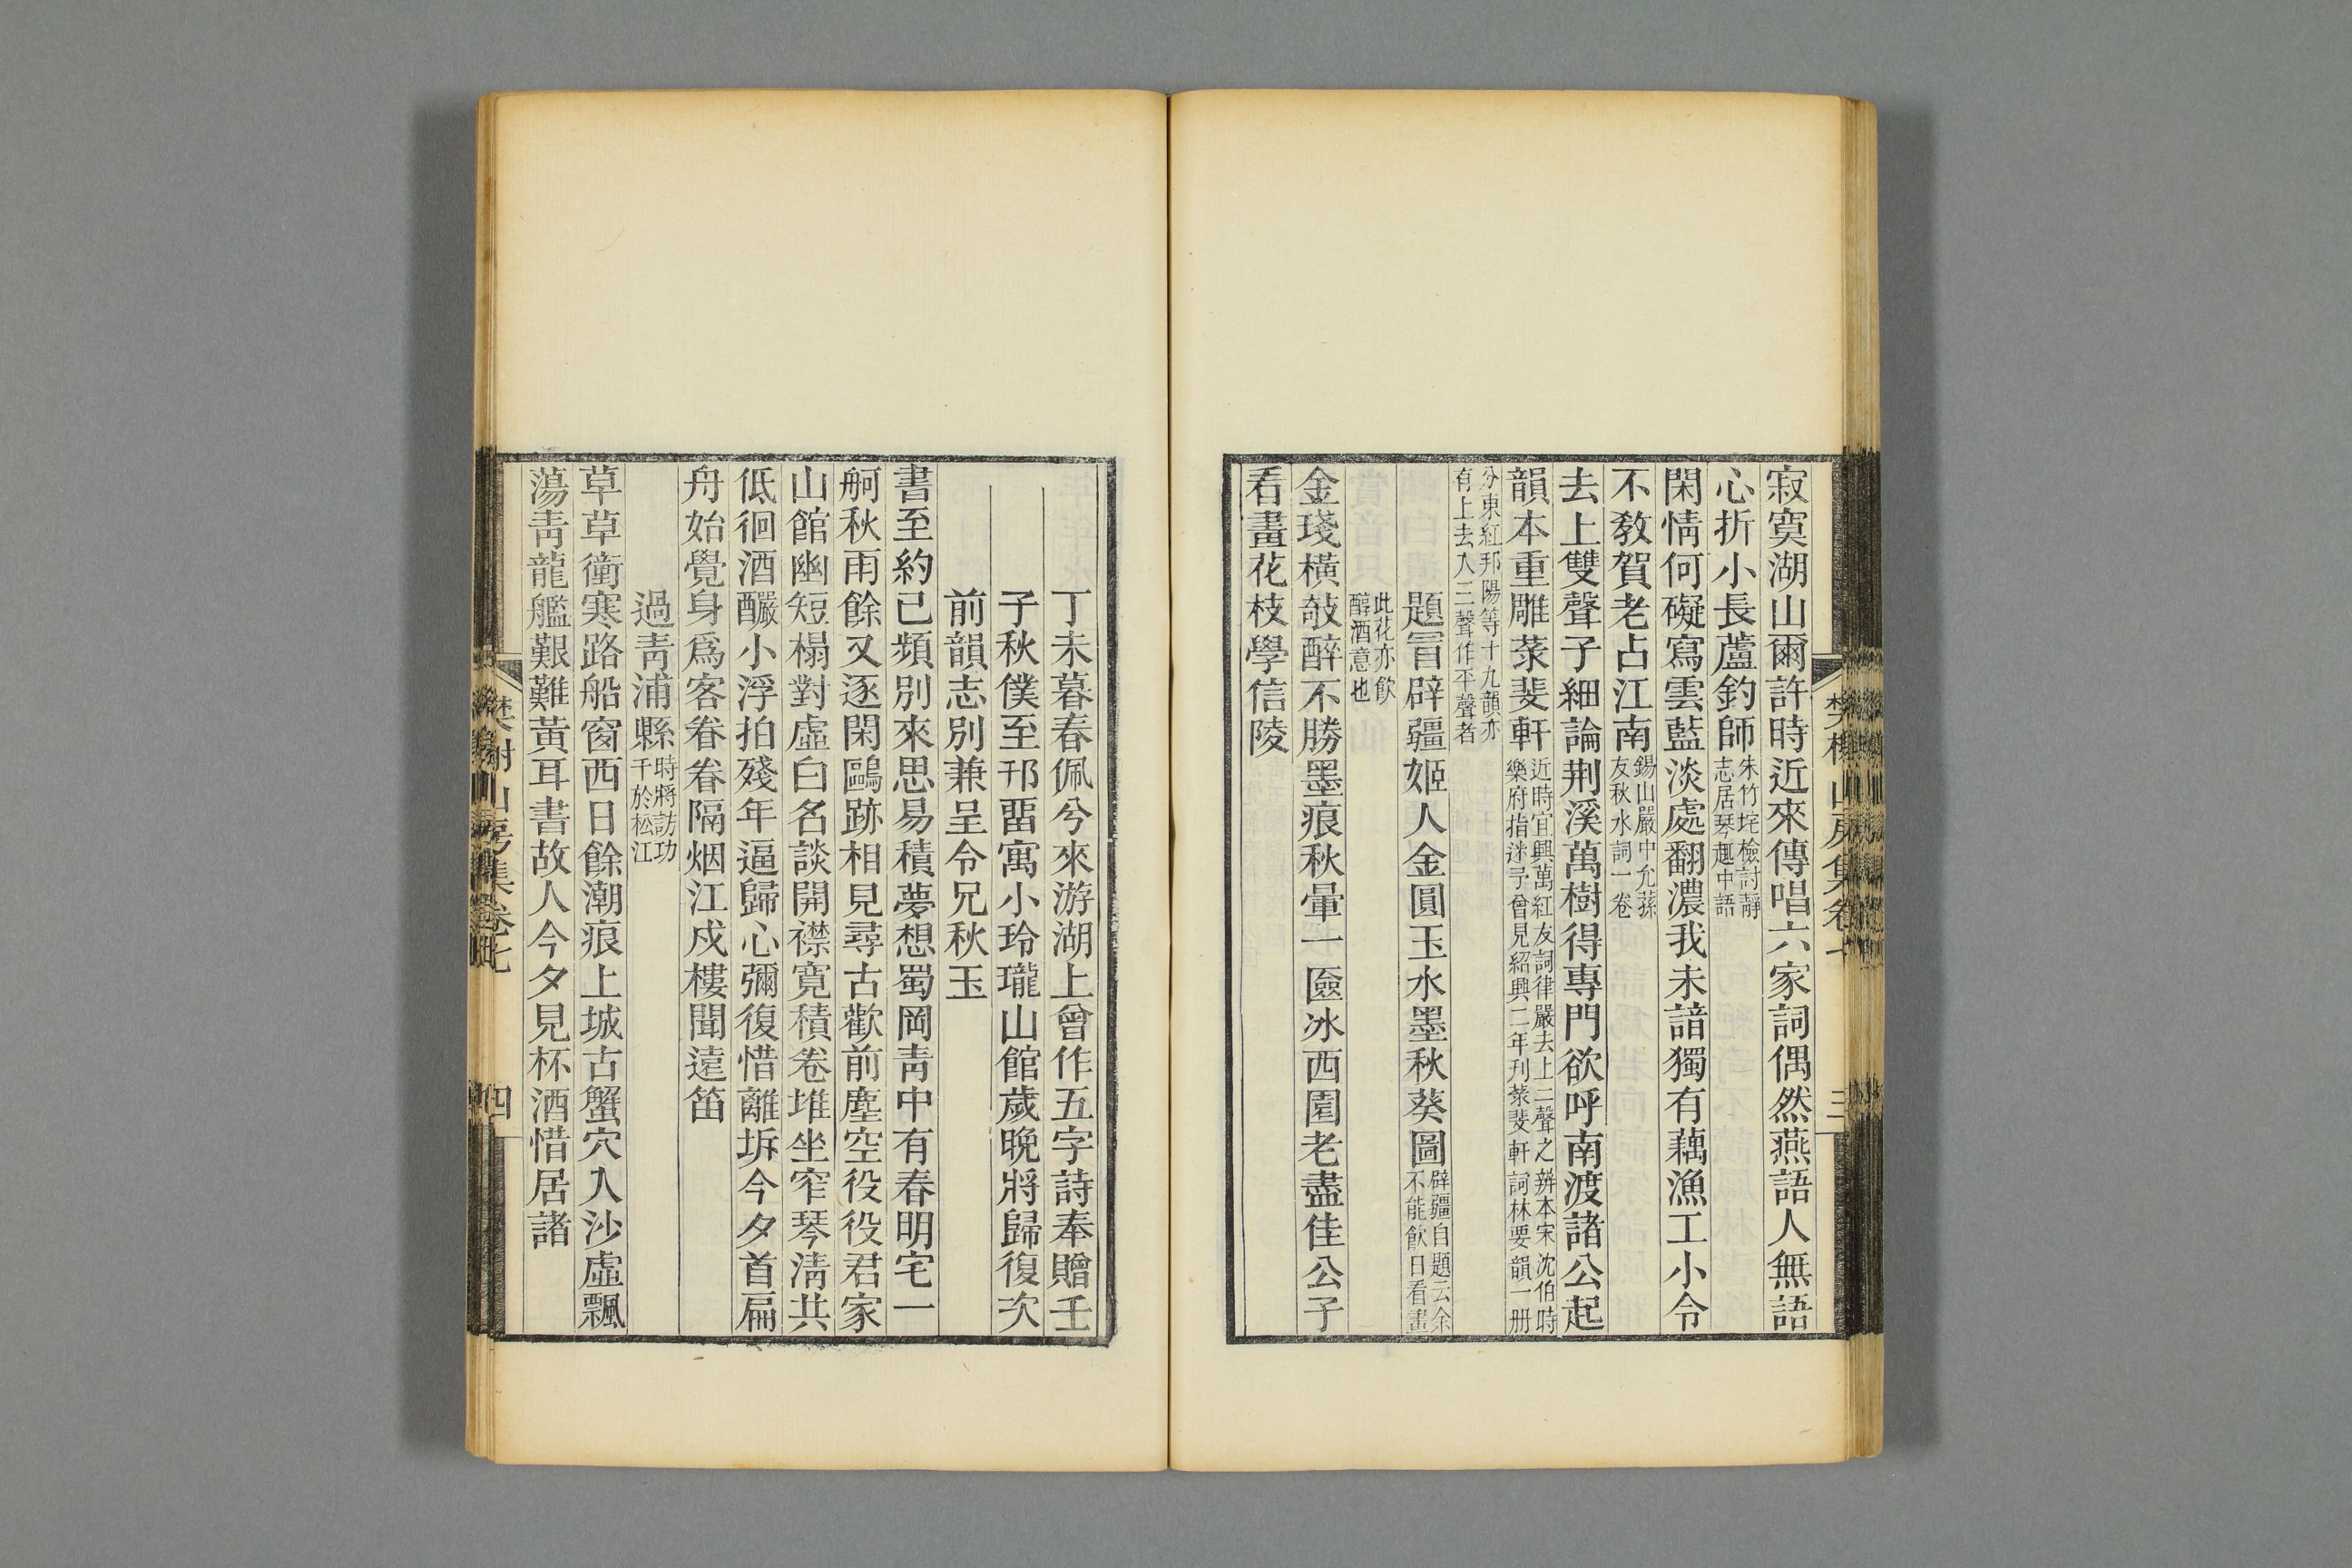 寂寞湖山爾許時近來傳唱六家詞偶然燕語人無語
心折小長蘆釣師朱竹垞檢討靜志居琴趣中語
閑情何礙寫雲藍淡處翻濃我未諳獨有藕漁工小令
不敎賀老占江南錫山嚴中允蓀友秋水詞一卷
去上雙聲子細論荆溪萬樹得專門欲呼南渡諸公起
韻本重雕菉斐軒近時宜興萬紅友詞律嚴去上二聲之辨本宋沈伯時樂府指迷予曾見紹興二年刋菉斐軒詞林要韻一册
分東紅邦陽等十九韻亦有上去入三聲作平聲者
題冒辟疆姬人金圓玉水墨秋葵圖辟疆自題云余不能飮日看畫
此花亦飮醇酒意也
金琖橫敧醉不勝墨痕秋暈一匳冰西園老盡佳公子
看畫花枝學信陵
樊榭山房集卷七
三
丁未暮春佩兮來游湖上曾作五字詩奉贈壬
子秋僕至邗畱寓小玲瓏山館歲晚將歸復次
前韻志別兼呈令兄秋玉
書至約已頻別來思易積夢想蜀岡靑中有春明宅一
舸秋雨餘又逐閑鷗跡相見尋古歡前塵空役役君家
山館幽短榻對虛白名談開襟寬積卷堆坐窄琴淸共
低徊酒釅小浮拍殘年逼歸心彌復惜離坼今夕首扁
舟始覺身爲客眷眷隔烟江戍樓聞遠笛
過靑浦縣時將訪功千於松江
草草衝寒路船窗西日餘潮痕上城古蟹穴入沙虛飄
蕩靑龍艦艱難黃耳書故人今夕見杯酒惜居諸
樊榭山房集卷七
四